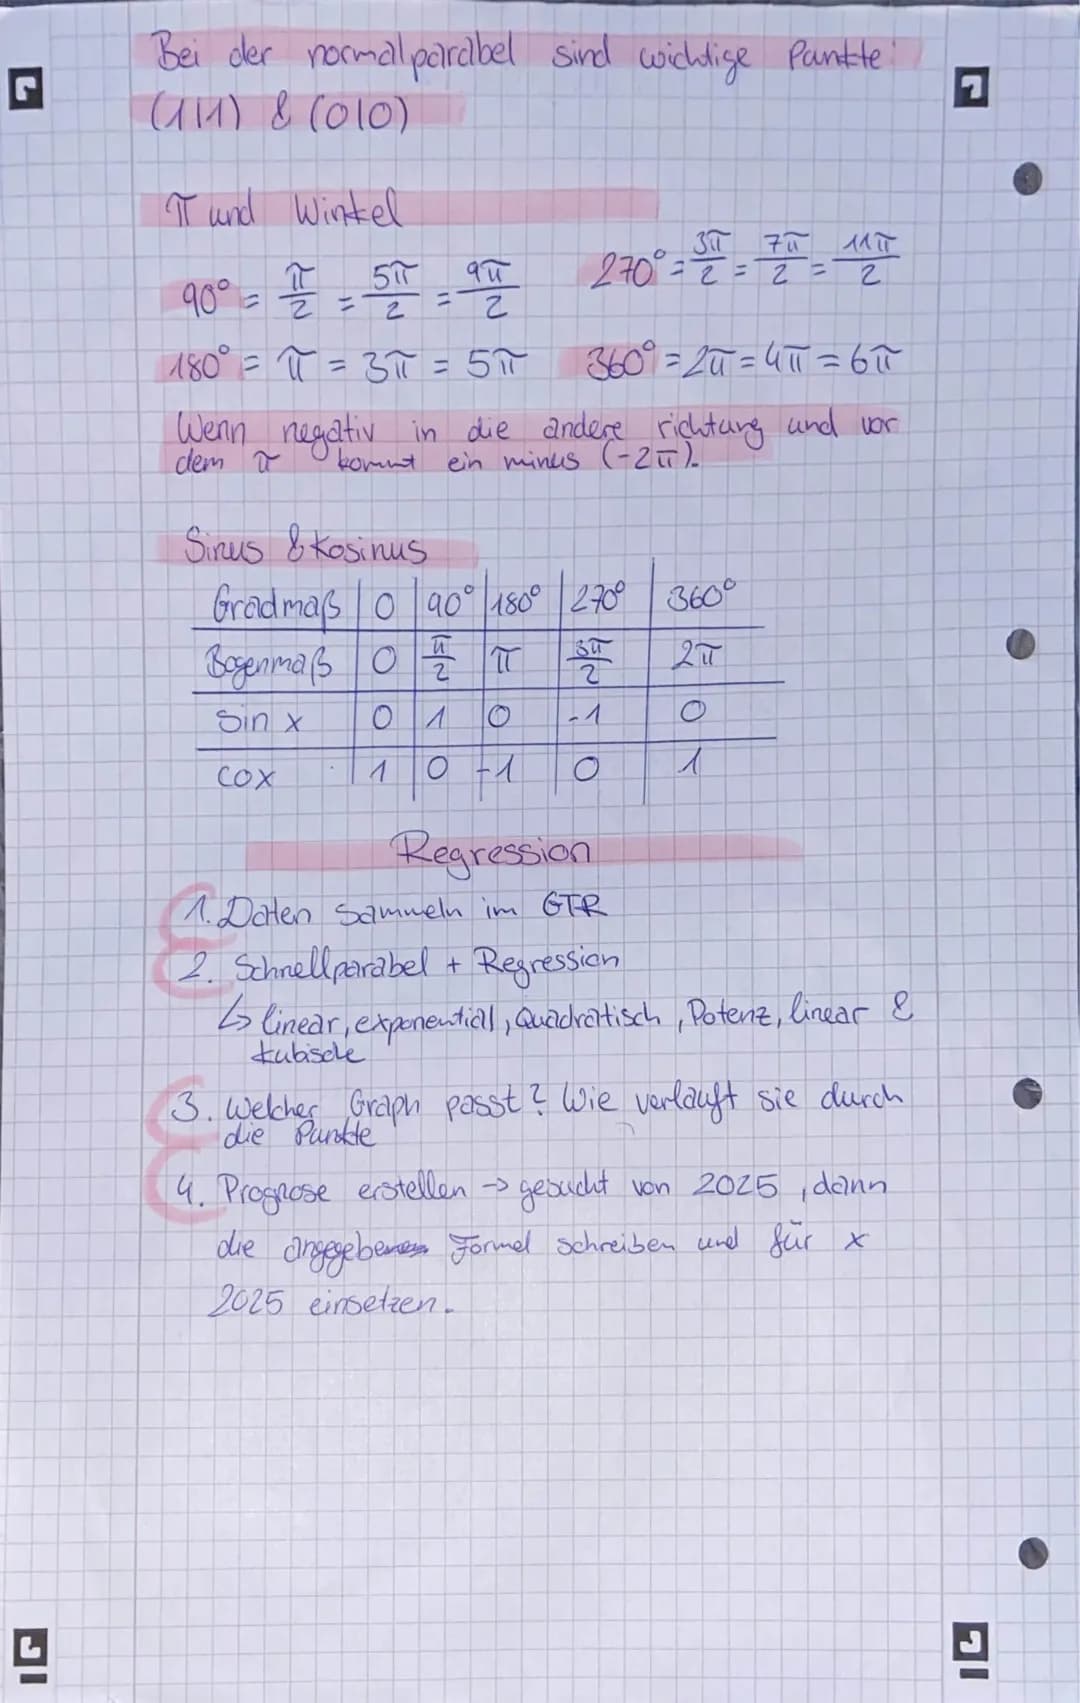 Bei der normalparabel sind wichtige Punkte:
(1|1) & (0|0)
π und Winkel
90° = π/2 = 5π/2 = 9π/2
270° = 3π/2 = 7π/2 = 11π/2
180° = π = 3π = 5π
360° = 2π = 4π = 6π
Wenn negativ in die andere richtung und vor
dem π kommt ein minus (-2π).
Sinus & Kosinus
Gradmaß | 0 | 90° | 180° | 270° | 360°
Bogenmaß | 0 | π/2 | π | 3π/2 | 2π
Sin x | 0 | 1 | 0 | -1 | 0
cox | 1 | 0 | -1 | 0 | 1
Regression
1. Daten sammeln im GTR
2. Schnellparabel + Regression
↳ linear, exponential, Quadratisch, Potenz, linear &
kubische
3. Welcher Graph passt? Wie verläuft sie durch
die Punkte
4. Prognose erstellen -> gesucht von 2025, dann
die angegebenen Formel schreiben und für x
2025 einsetzen.